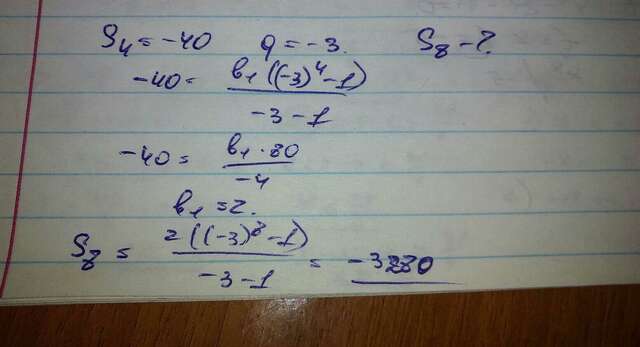 S₄ = -40 q = -3. S₈ - ?
-40 = b₁((-3)⁴-1) / -3-1
-40 = b₁·80 / -4
b₁ = 2.
S₈ = 2((-3)⁸-1) / -3-1 = -3280